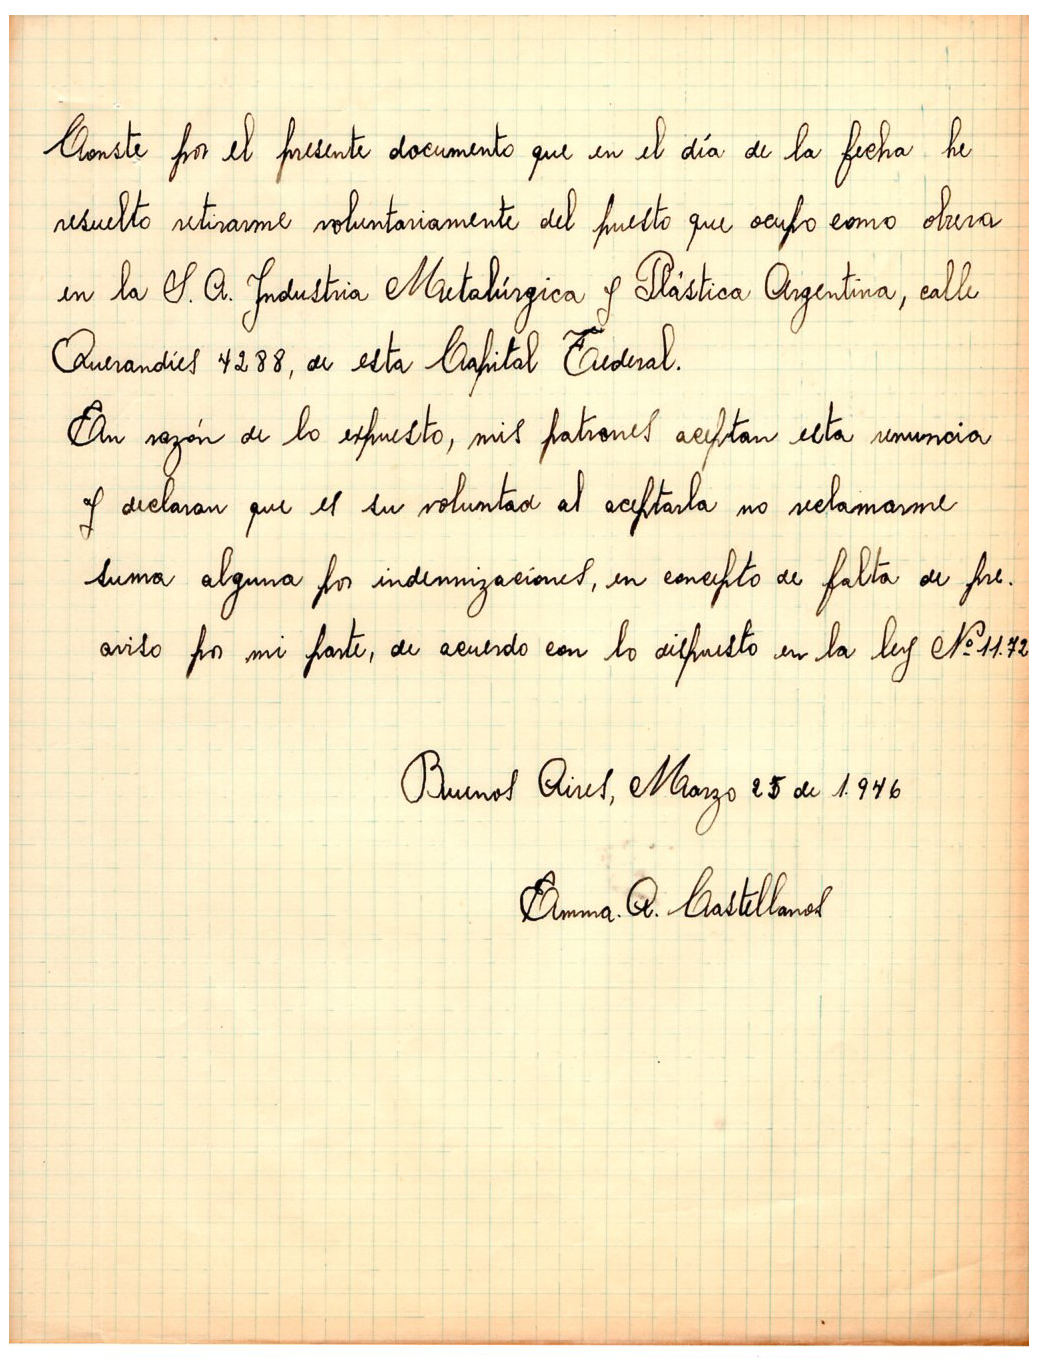 Conste por el presente documento que en el día de la fecha he
resuelto retirarme voluntariamente del puesto que ocupo como obrera
en la S. A. Industria Metalúrgica y Plástica Argentina, calle
Querandíes 4288, de esta Capital Federal.
En razón de lo expuesto, mis patrones aceptan esta renuncia
y declaran que es su voluntad al aceptarla no reclamarme
suma alguna por indemnizaciones, en concepto de falta de pre.
aviso por mi parte, de acuerdo con lo dispuesto en la ley Nº 11.72
Buenos Aires, Marzo 25 de 1.946
Emma. A. Castellanos